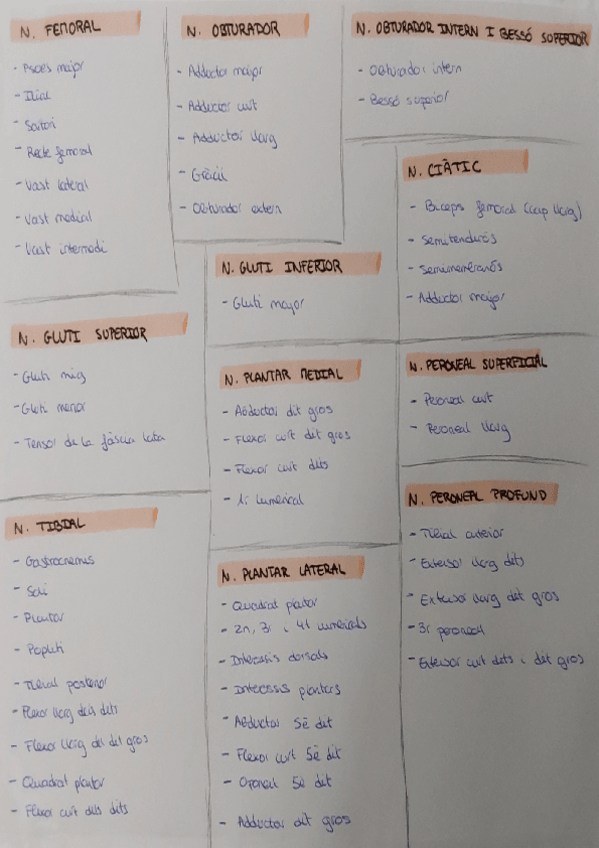 N. FEMORAL
- Psoes major
- Ilíac
- Sartori
- Recte femoral
- Vast lateral
- Vast medial
- Vast intermedi
N. OBTURADOR
- Adductor major
- Adductor curt
- Adductor llarg
- Gràcil
- Obturador extern
N. OBTURADOR INTERN I BESSÓ SUPERIOR
- Obturador intern
- Bessó superior
N. CIÀTIC
- Bíceps femoral (cap llarg)
- Semitendinós
- Semimembranós
- Adductor major
N. GLUTI INFERIOR
- Gluti major
N. GLUTI SUPERIOR
- Gluti mig
- Gluti menor
- Tensor de la fàscia lata
N. PLANTAR MEDIAL
- Abductor dit gros
- Flexor curt dit gros
- Flexor curt dits
- 1r lumbrical
N. PERONEAL SUPERFICIAL
- Peroneal curt
- Peroneal llarg
N. PERONEAL PROFUND
- Tibial anterior
- Extensor llarg dits
- Extensor llarg dit gros
- 3r peroneal
- Extensor curt dits i dit gros
N. TIBIAL
- Gastrocnemis
- Soli
- Plantar
- Popliti
- Tibial posterior
- Flexor llarg dels dits
- Flexor llarg del dit gros
- Quadrat plantar
- Flexor curt dels dits
N. PLANTAR LATERAL
- Quadrat plantar
- 2n, 3r i 4t lumbricals
- Interossis dorsals
- Interossis plantars
- Abductor 5è dit
- Flexor curt 5è dit
- Oponent 5è dit
- Adductor dit gros